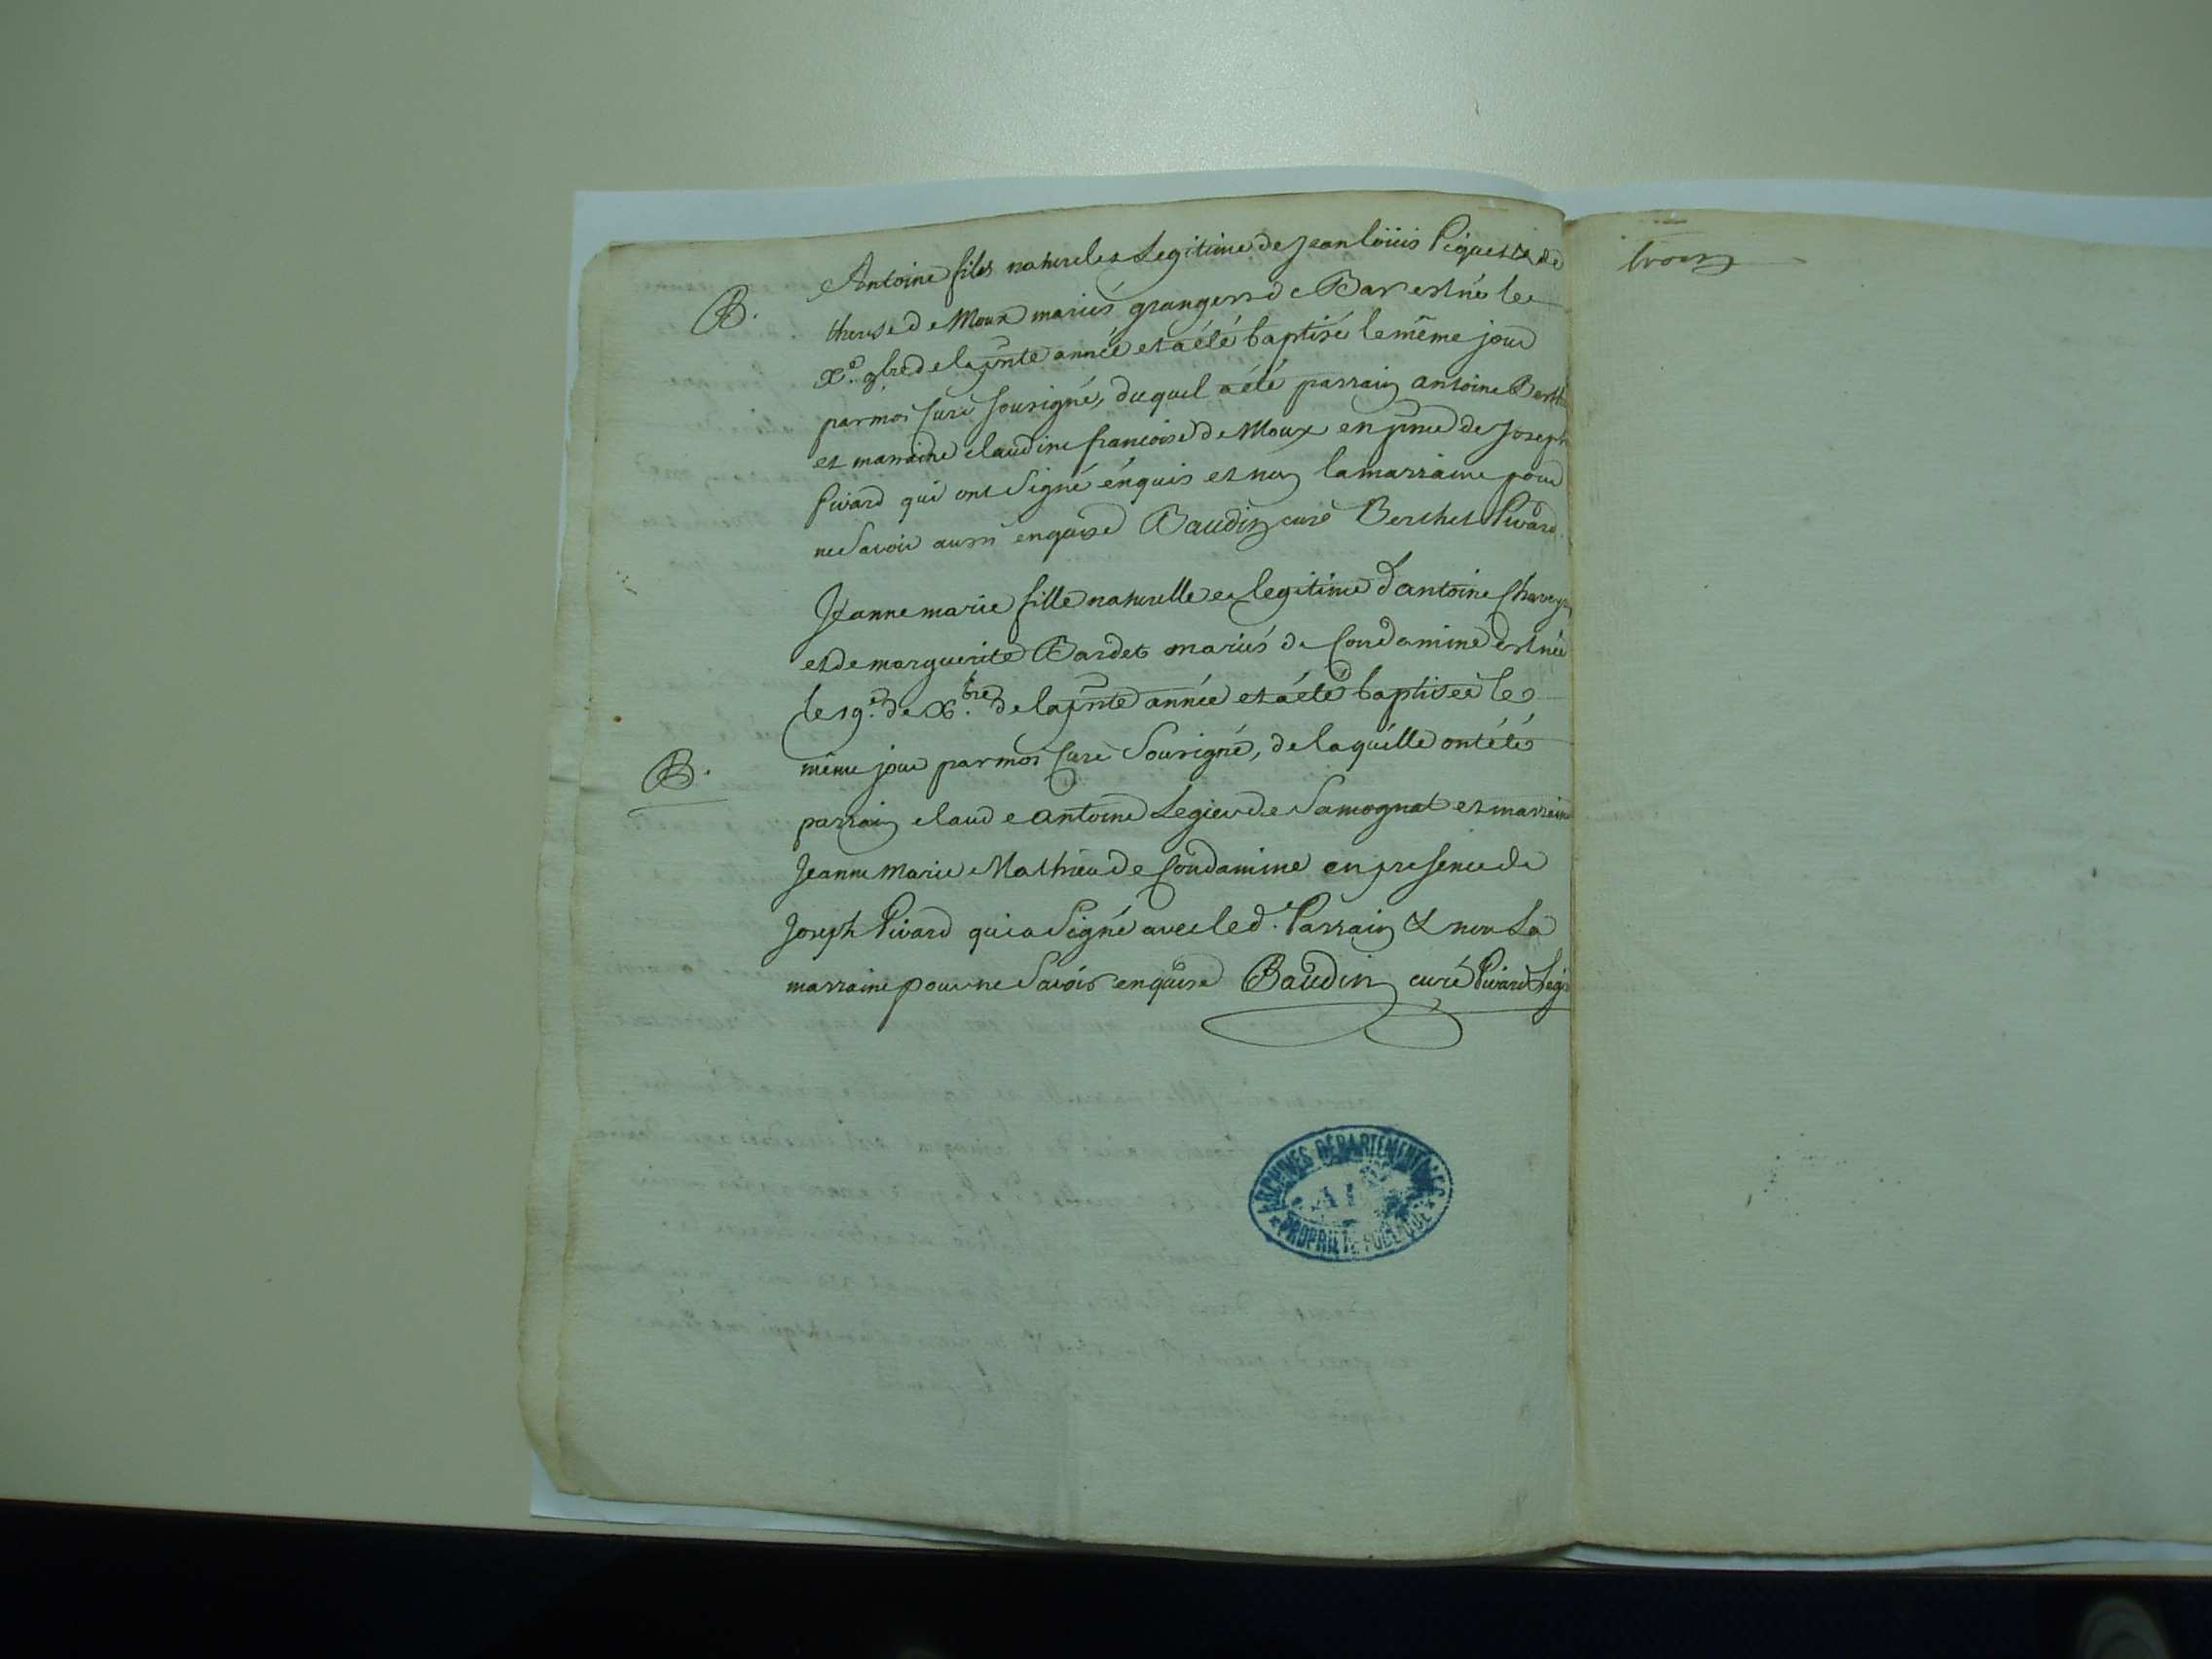 B. Antoine fils naturel et Legitime de Jean loüis Piquet et de
therese de Moux mariés grangers de Bar est né le
X.e 9bre de la pnte année et a été baptisé le même jour
par moi Curé Sousigné, duquel a été parrain antoine Berthet
et marraine claudine francoise de Moux en pnce de Joseph
Pivard qui ont Signé énquis et non la marraine pour
ne Savoir aussi enquise Baudin curé Berthet Pivard.
Jeanne marie fille naturelle et legitime d'antoine
et de marguerite Bardet mariés de Condamine est née
le 19.e de Xbre de la pnte année et a été baptiseé le
B. même jour par moi Curé Sousigné, de laquélle ont été
parrain claude antoine Legier de Samognat et marraine
Jeanne Marie Mathieu de Condamine en presence de
Joseph Pivard qui a Signé avec led. Parrain & non La
marraine pour ne Savoir enquise Baudin curé Pivard Legi
ARCHIVES DÉPARTEMENTALES
AIN
PROPRIÉTÉ PUBLIQUE